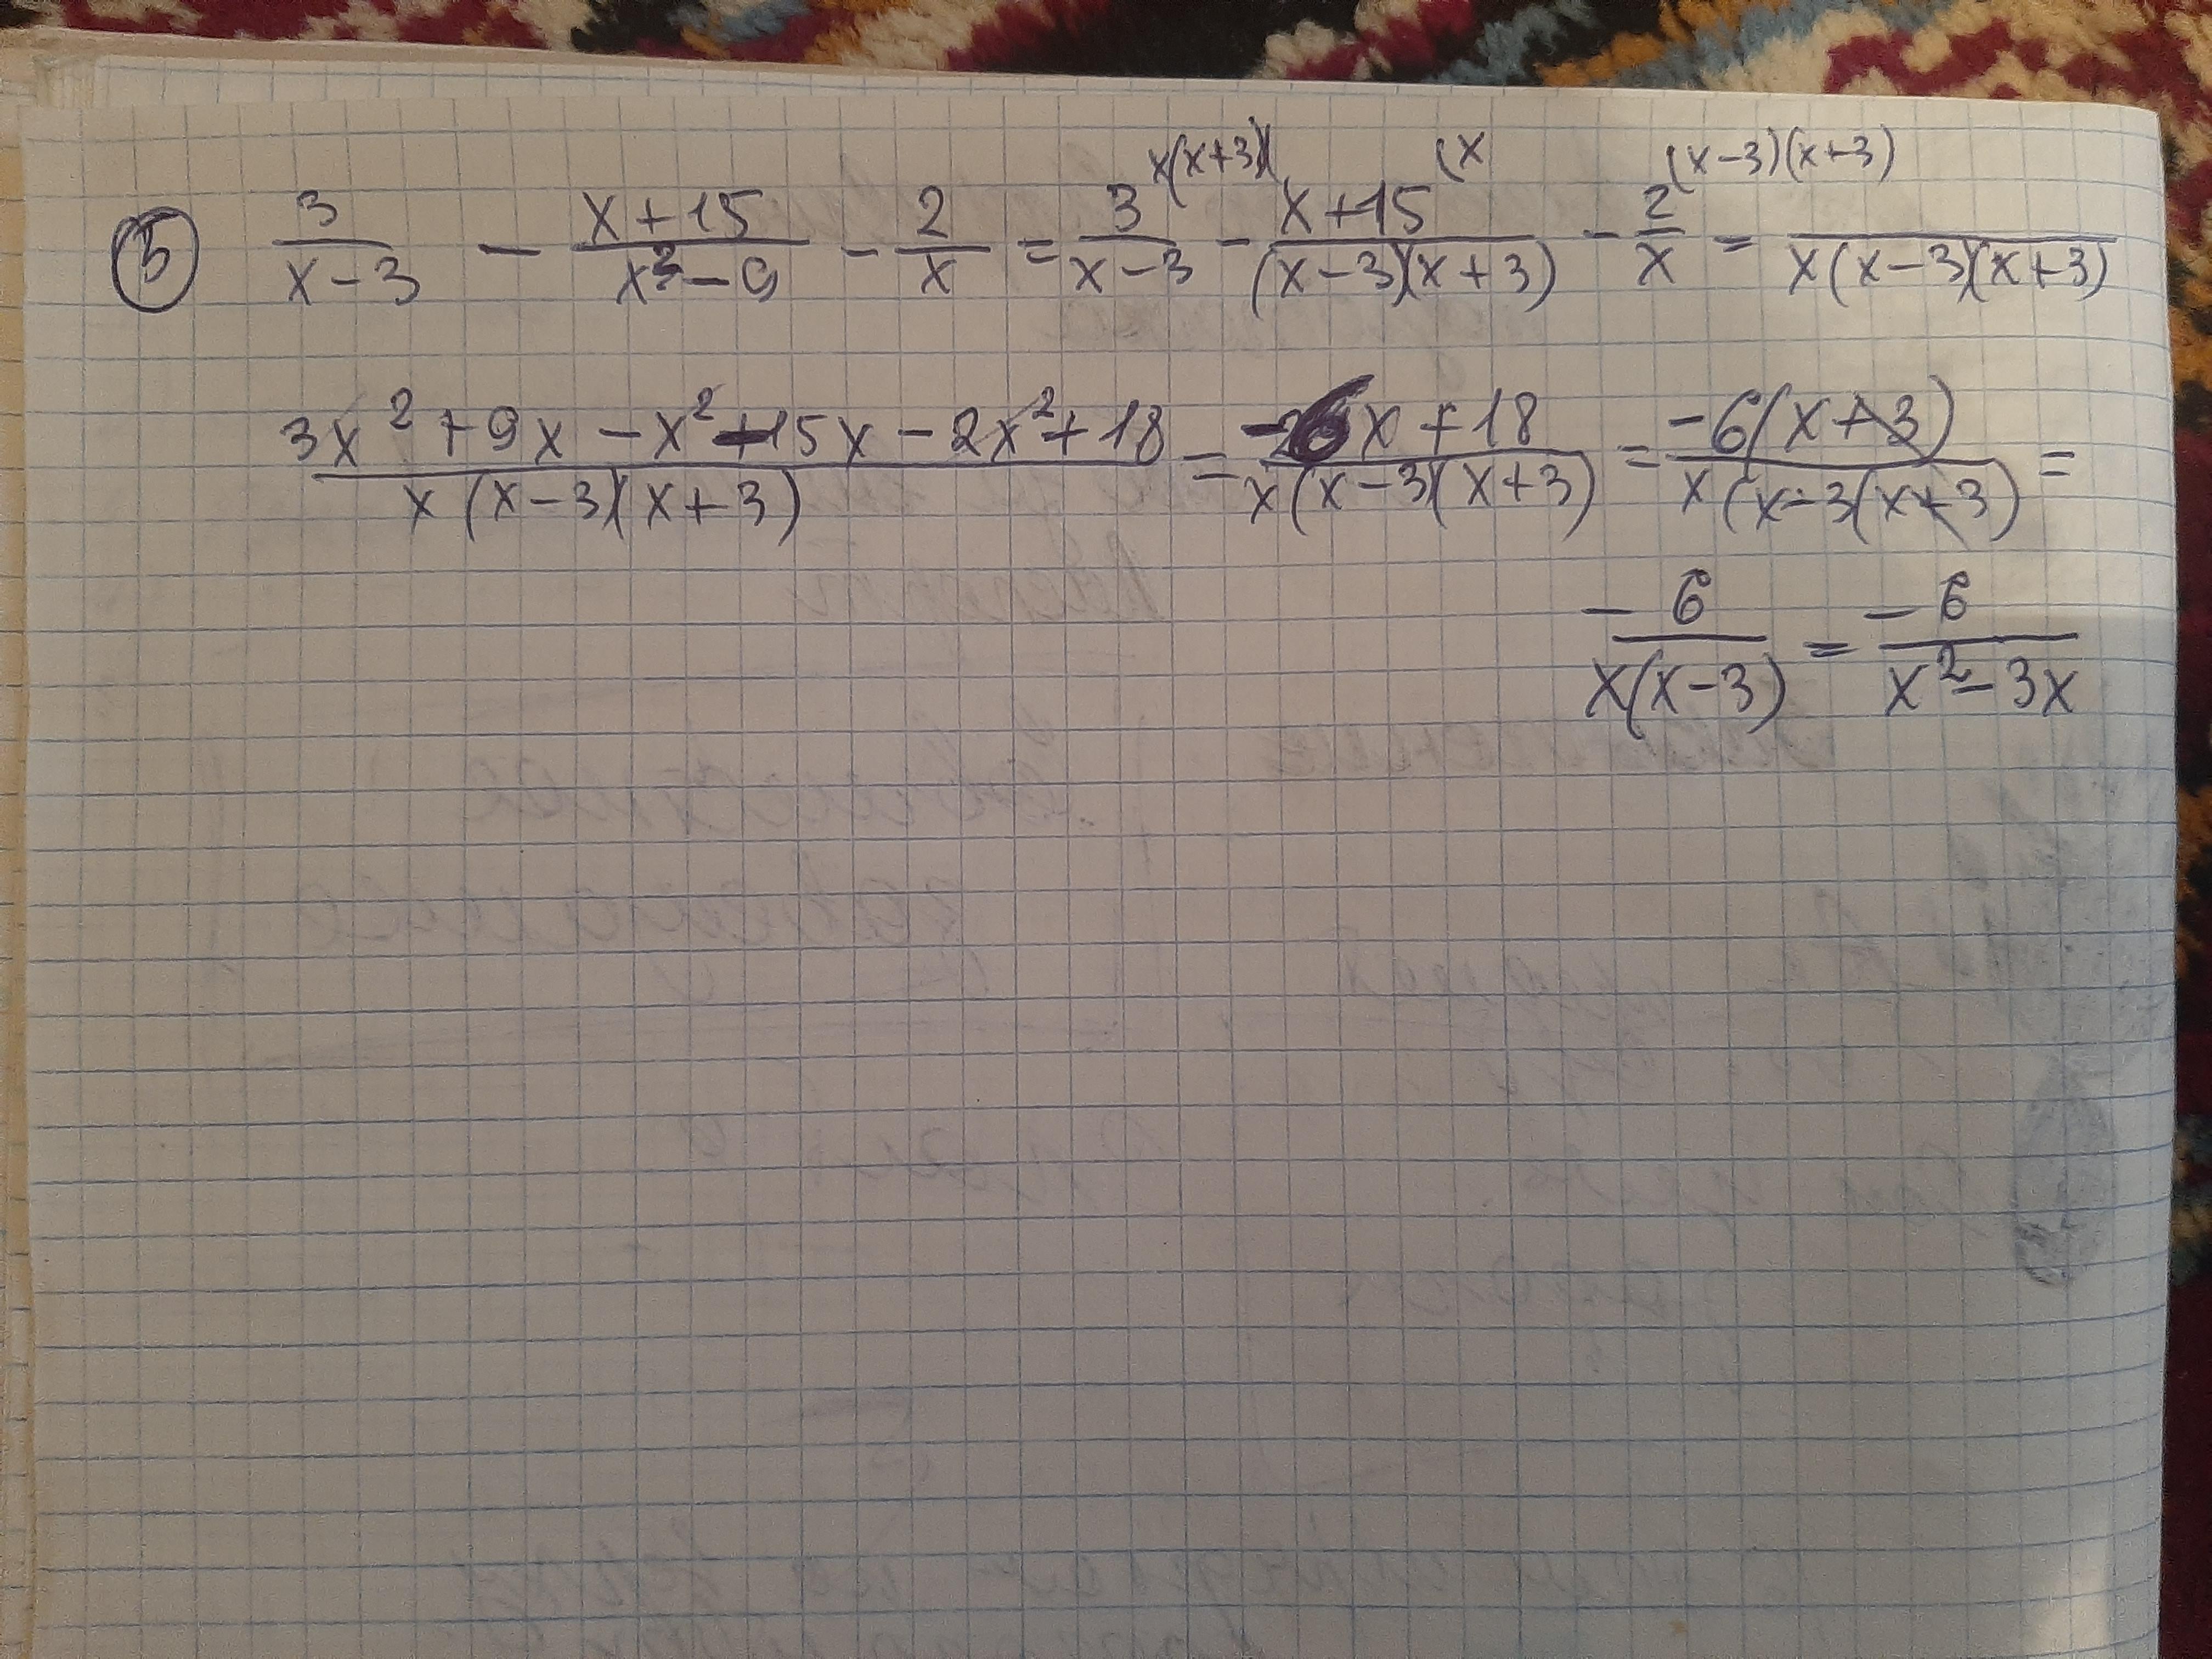 5 3/(x-3) - (x+15)/(x²-9) - 2/x = 3/(x-3) x(x+3)( - (x+15)/((x-3)(x+3)) (x - 2/x (x-3)(x+3) = /(x(x-3)(x+3))
(3x²+9x-x²-15x-2x²+18)/(x(x-3)(x+3)) = (-6x+18)/(x(x-3)(x+3)) = (-6(x+3))/(x(x-3(x+3)) =
-6/(x(x-3)) = -6/(x²-3x)